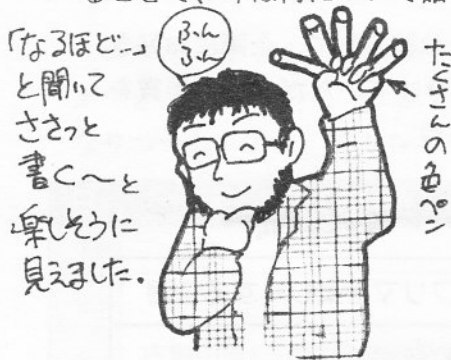 「なるほど…」
と聞いて
ささっと
書く〜と
楽しそうに
見えました。
ふーん
ふーん
たくさんの色ペン